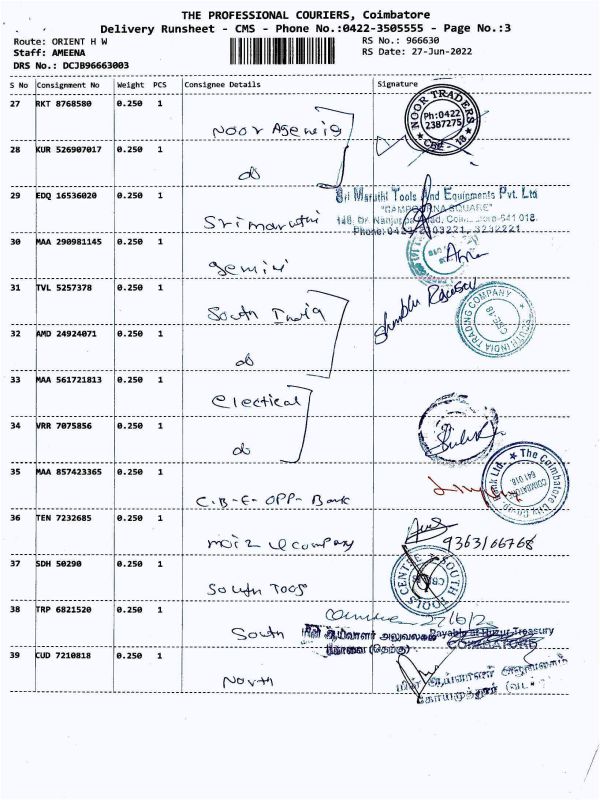 THE PROFESSIONAL COURIERS, Coimbatore
Delivery Runsheet - CMS - Phone No.:0422-3505555 - Page No.:3
Route: ORIENT H W RS No.: 966630
Staff: AMEENA RS Date: 27-Jun-2022
DRS No.: DCJB96663003
S No Consignment No Weight PCS Consignee Details Signature
27 RKT 8768580 0.250 1
NOOR TRADERS
Ph:0422
2387275
CBE - 18
Noor Agencig
28 KUR 526907017 0.250 1
do
29 EDQ 16536020 0.250 1
Sri Maruthi Tools And Equipments Pvt. Ltd
Sri maruthi
30 MAA 290981145 0.250 1
Gemini
31 TVL 5257378 0.250 1
South India
SOUTH INDIA TRADING COMPANY
CBE-18
32 AMD 24924071 0.250 1
do
33 MAA 561721813 0.250 1
Electical
34 VRR 7075856 0.250 1
do
35 MAA 857423365 0.250 1
The Coimbatore City Co-op Bank Ltd.
COIMBATORE
641 018.
C.B-E-OPP-Bank
36 TEN 7232685 0.250 1
9363166768
37 SDH 50290 0.250 1
SOUTH TOOLS CENTRE
South Tools
38 TRP 6821520 0.250 1
South
மின் ஆய்வாளர் அலுவலகம்
கோவை (தெற்கு)
Payable at Huzur Treasury
COIMBATORE
39 CUD 7210818 0.250 1
North
மின் ஆய்வாளர் அலுவலகம்
கோயமுத்தூர் (வட